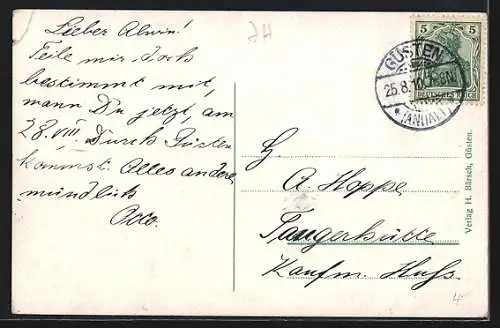 Lieber Alwin!
Teile mir doch
bestimmt mit,
wann Du jetzt, am
28.VIII. Durch Güsten
kommst. Alles andere
mündlich
Otto.
5 5
DEUTSCHES REICH
GÜSTEN
25.8.10.
*(ANHALT)*
H.
A. Hoppe
Tangerhütte
Kaufm. Huß.
Verlag H. Bärsch, Güsten.